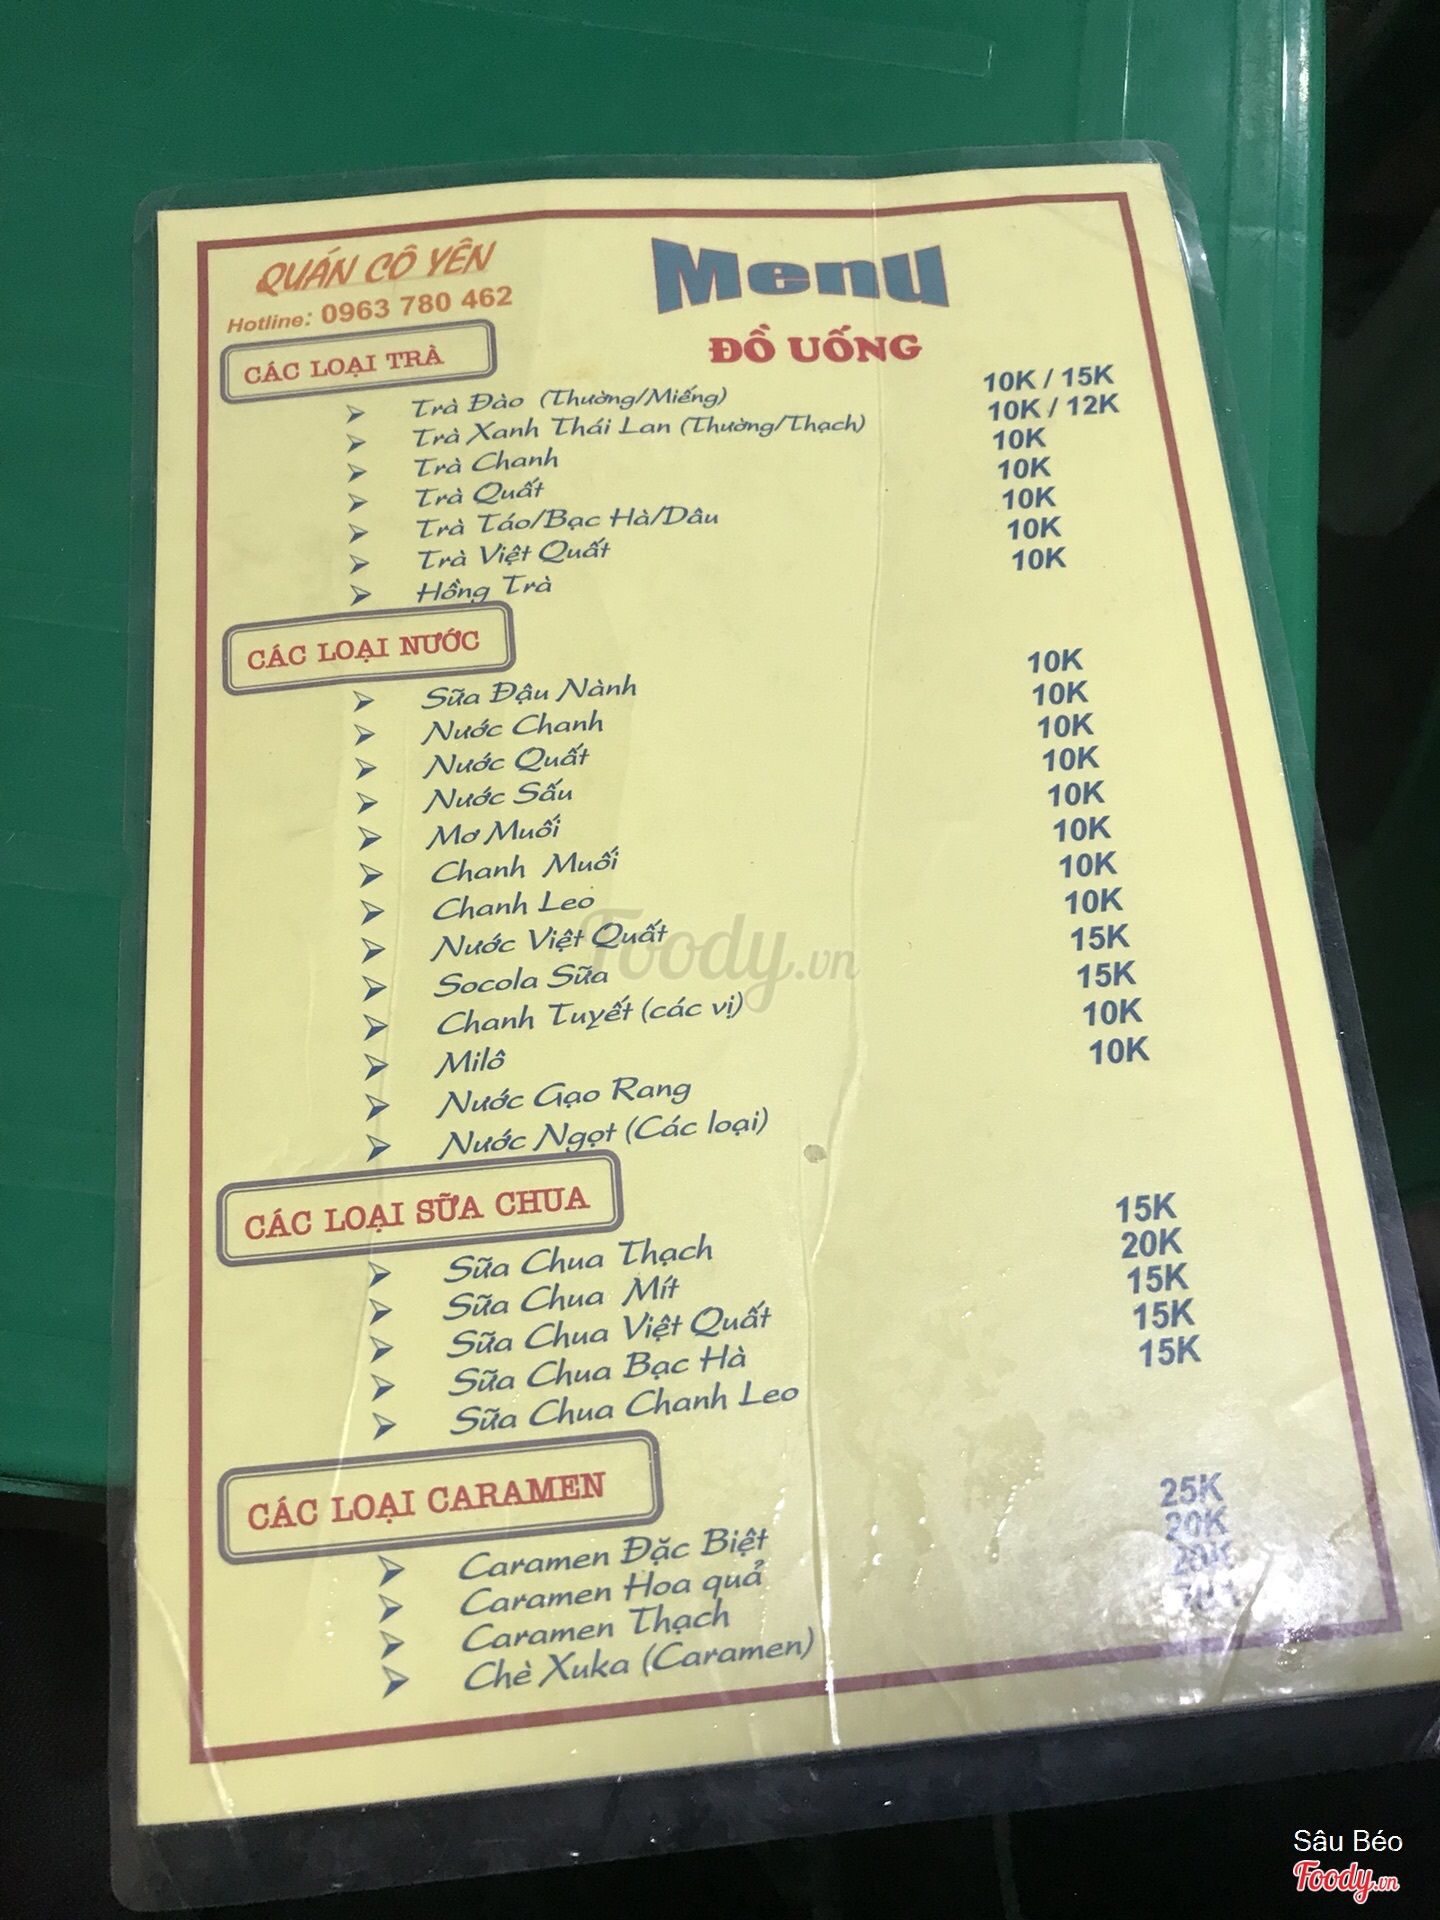 QUÁN CÔ YÊN
Hotline: 0963 780 462
Menu
ĐỒ UỐNG
CÁC LOẠI TRÀ
Trà Đào (Thường/Miếng) 10K / 15K
Trà Xanh Thái Lan (Thường/Thạch) 10K / 12K
Trà Chanh 10K
Trà Quất 10K
Trà Táo/Bạc Hà/Dâu 10K
Trà Việt Quất 10K
Hồng Trà 10K
CÁC LOẠI NƯỚC
Sữa Đậu Nành 10K
Nước Chanh 10K
Nước Quất 10K
Nước Sấu 10K
Mơ Muối 10K
Chanh Muối 10K
Chanh Leo 10K
Nước Việt Quất 10K
Socola Sữa 15K
Chanh Tuyết (các vị) 15K
Milô 10K
Nước Gạo Rang 10K
Nước Ngọt (Các loại)
CÁC LOẠI SỮA CHUA
Sữa Chua Thạch 15K
Sữa Chua Mít 20K
Sữa Chua Việt Quất 15K
Sữa Chua Bạc Hà 15K
Sữa Chua Chanh Leo 15K
CÁC LOẠI CARAMEN
Caramen Đặc Biệt 25K
Caramen Hoa quả 20K
Caramen Thạch 20K
Chè Xuka (Caramen)
Foody.vn
Sâu Béo
Foody.vn